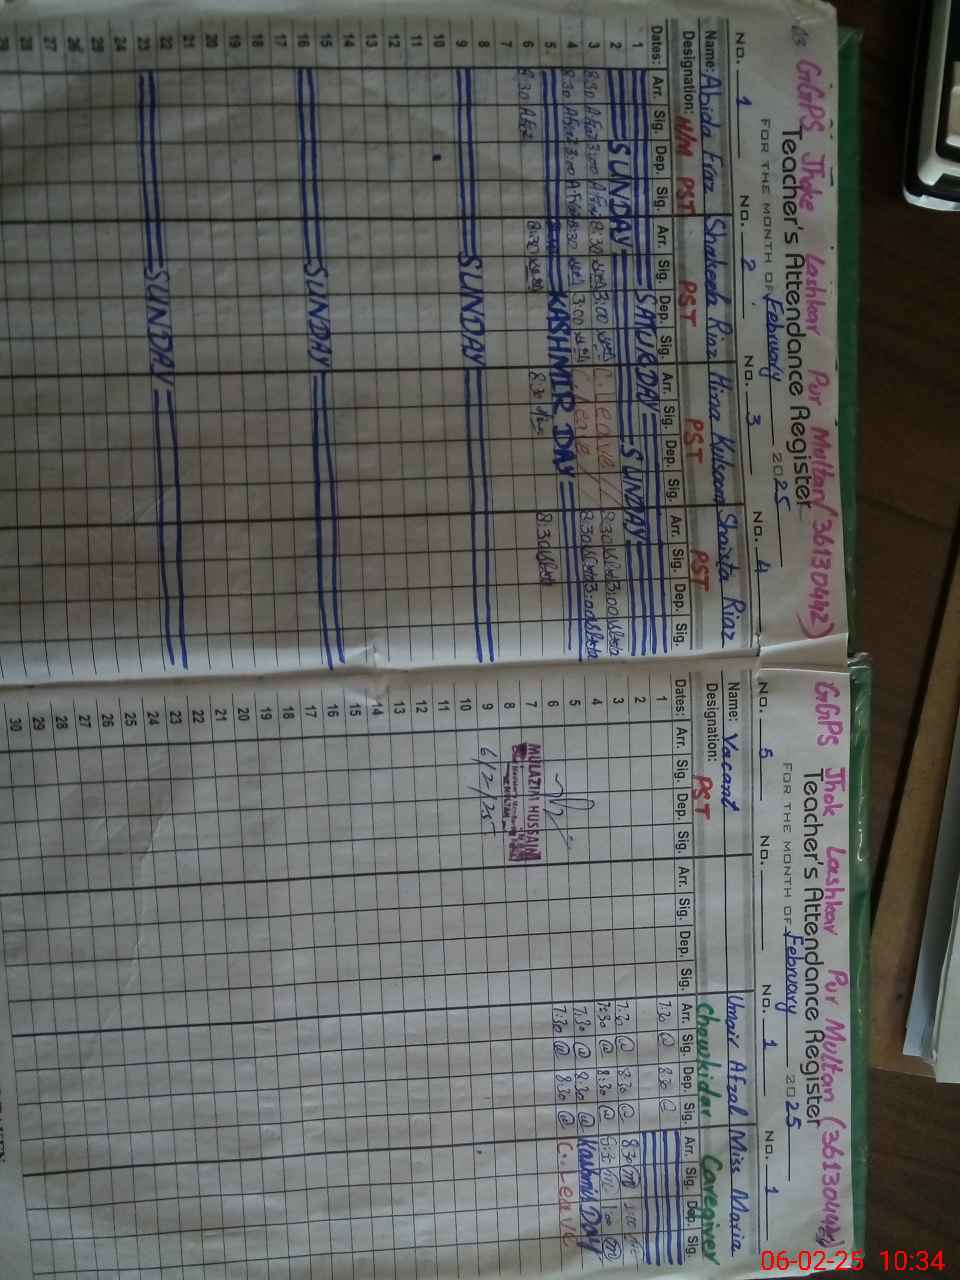 GGPS Jhoke Lashkar Pur Multan (36130442)
Teacher's Attendance Register
FOR THE MONTH OF February 2025
No. 1 No. 2 No. 3 No. 4
Name: Abida Firaz Shakeela Riaz Hina Kulsoom Shaista Riaz
Designation: H/M PST PST PST PST
Dates: Arr. Sig. Dep. Sig. Arr. Sig. Dep. Sig. Arr. Sig. Dep. Sig. Arr. Sig. Dep. Sig.
1 SATURDAY
2 SUNDAY SUNDAY
3 8:30 3:00 8:30 3:00 C. Leave 8:30 3:00
4 8:30 3:00 8:30 3:00 C. Leave 8:30 3:00
5 KASHMIR DAY
6 8:30 8:30 8:30 8:30
7
8
9 SUNDAY
10
11
12
13
14
15
16 SUNDAY
17
18
19
20
21
22
23 SUNDAY
24
26
27
28
GGPS Jhok Lashkar Pur Multan (36130442)
Teacher's Attendance Register
FOR THE MONTH OF February 2025
No. 5 No. No. 1 No. 1
Name: Vacant Umair Afzal Miss Maria
Designation: PST Chowkidar Caregiver
Dates: Arr. Sig. Dep. Sig. Arr. Sig. Dep. Sig. Arr. Sig. Dep. Sig. Arr. Sig. Dep. Sig.
1 7:30 8:30
2
3 7:30 8:30 8:30
4 7:30 8:30
5 7:30 8:30 Kashmir DAY
6 7:30 8:30 C. Leave
7 MULAZIM HUSSAIN
8
9 6/2/25
10
11
12
13
14
15
16
17
18
19
20
21
22
23
24
25
26
27
28
29
30
06-02-25 10:34